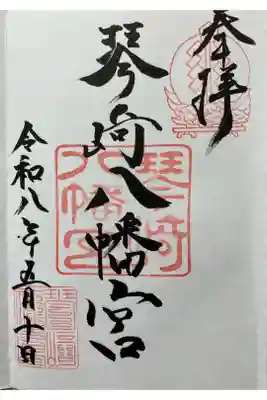 奉拝
琴崎八幡宮
令和八年五月十日
琴崎八幡宮